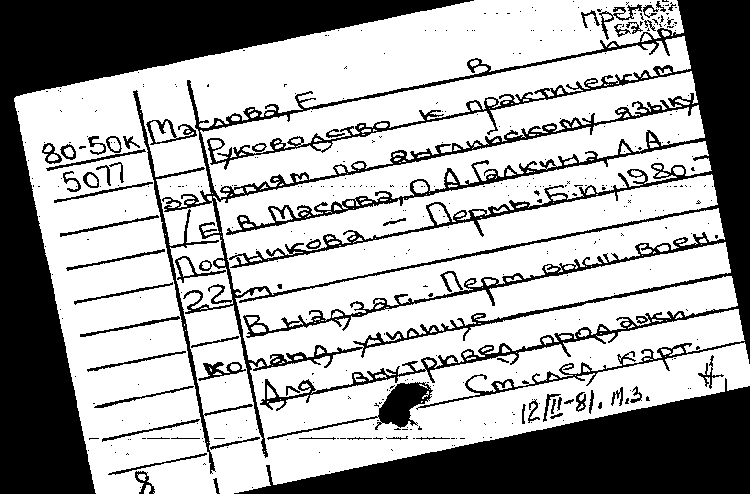 80-50к
5077
Маслова, Е В и др
Руководство к практическим
занятиям по английскому языку
/Е.В. Маслова, О.А. Галкина, Л.А.
Постникова. — Пермь: Б.и., 1980.-
22 ст.
В надзаг.: Перм. высш. воен.
команд. училище
Для внутривед. продажи
Ст. след. карт.
12/II-81. М.З.
8